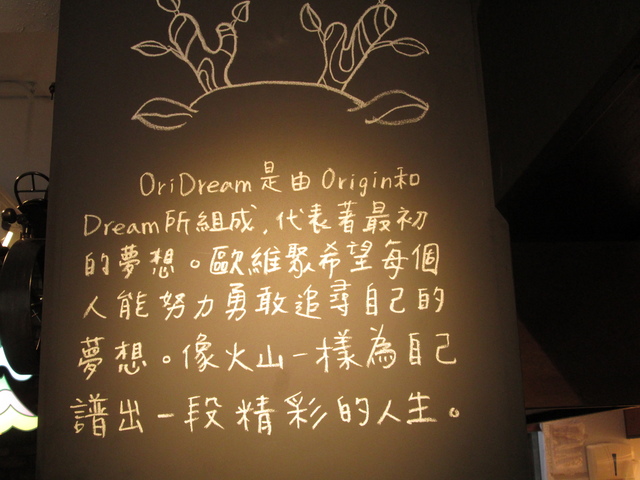 OriDream是由Origin和
Dream所組成,代表著最初
的夢想。歐維聚希望每個
人能努力勇敢追尋自己的
夢想。像火山一樣為自己
譜出一段精彩的人生。